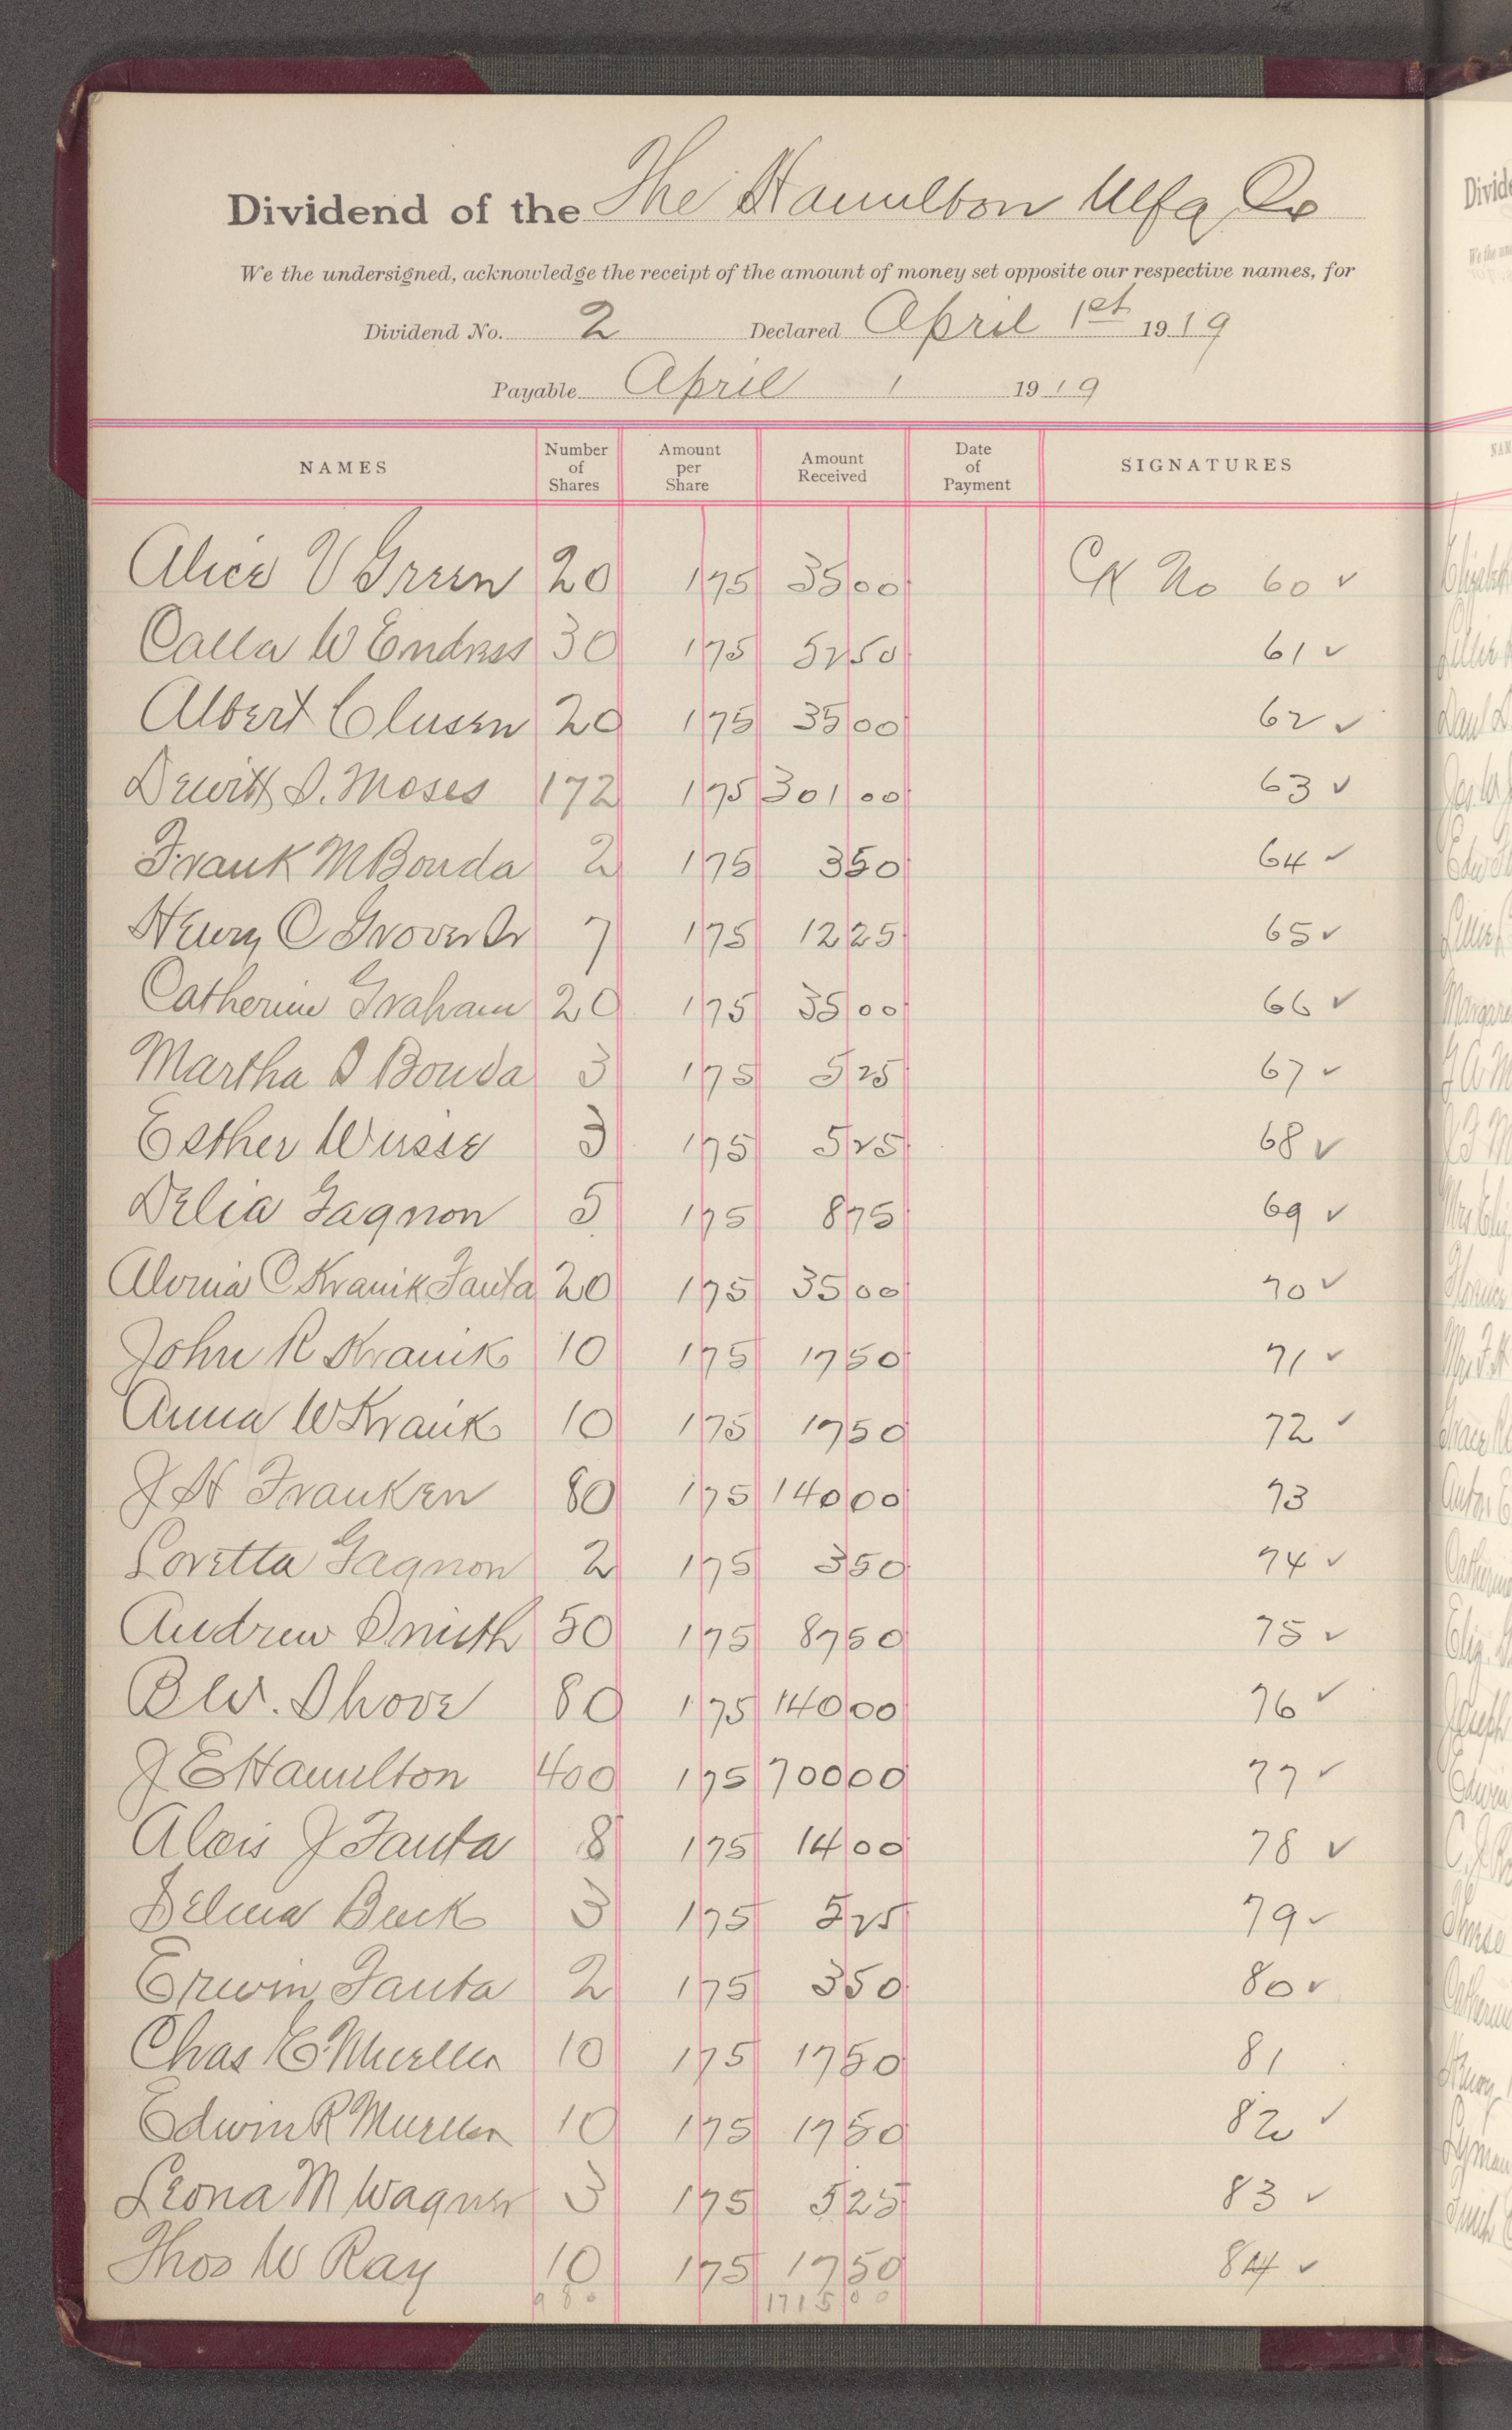 Dividend of the The Hamilton Mfg Co
We the undersigned, acknowledge the receipt of the amount of money set opposite our respective names, for
Dividend No. 2 Declared April 1st 1919
Payable April 1 1919
NAMES Number of Shares Amount per Share Amount Received Date of Payment SIGNATURES
Alice V Green 20 1 75 35 00 Ck No 60 ✓
Calla W Endress 30 1 75 52 50 61 ✓
Albert Clusen 20 1 75 35 00 62 ✓
Dewitt S. Moses 172 1 75 301 00 63 ✓
Frank M Bonda 2 1 75 3 50 64 ✓
Henry C Grover Jr 7 1 75 12 25 65 ✓
Catherine Graham 20 1 75 35 00 66 ✓
Martha S Bonda 3 1 75 5 25 67 ✓
Esther Weisse 3 1 75 5 25 68 ✓
Delia Gagnon 5 1 75 8 75 69 ✓
C Kranik Fanta 20 1 75 35 00 70 ✓
John R Kranik 10 1 75 17 50 71 ✓
Anna W Kranik 10 1 75 17 50 72 ✓
J H Franken 80 1 75 140 00 73
Loretta Gagnon 2 1 75 3 50 74 ✓
Andrew Smith 50 1 75 87 50 75 ✓
B W. Shove 80 1 75 140 00 76 ✓
J E Hamilton 400 1 75 700 00 77 ✓
Alois J Fanta 8 1 75 14 00 78 ✓
Selma Beck 3 1 75 5 25 79 ✓
Erwin Fanta 2 1 75 3 50 80 ✓
Chas E Mueller 10 1 75 17 50 81
Edwin R Mueller 10 1 75 17 50 82 ✓
Leona M Wagner 3 1 75 5 25 83 ✓
Thos W Ray 10 1 75 17 50 84 ✓
980 1715 00